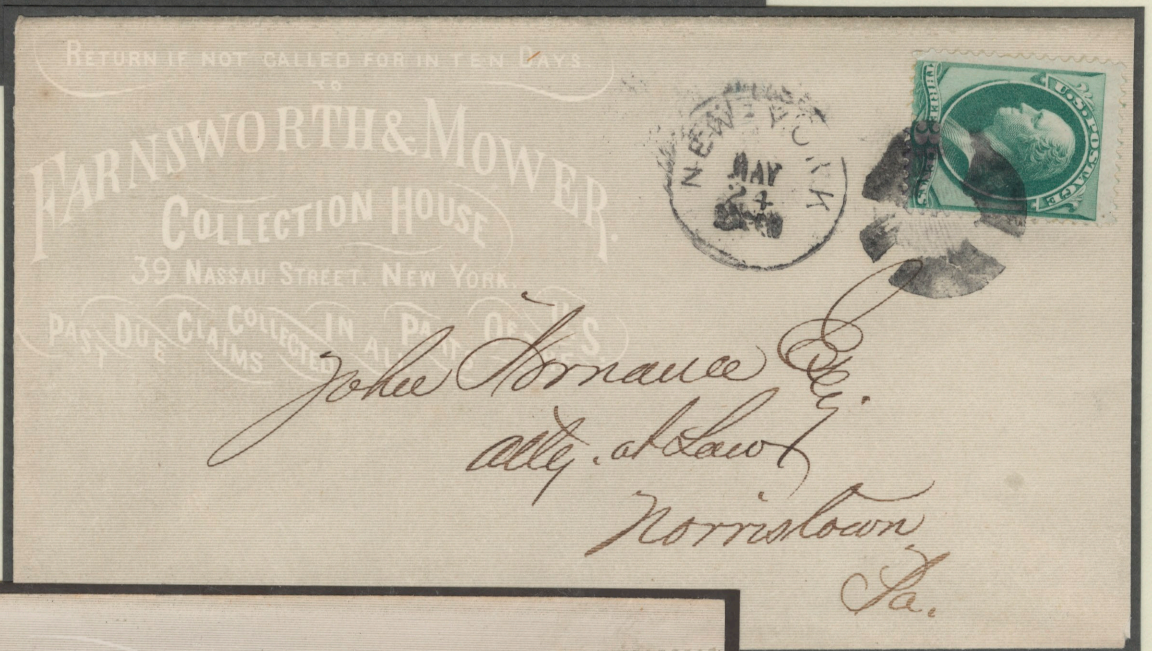 RETURN IF NOT CALLED FOR IN TEN DAYS.
TO
FARNSWORTH & MOWER.
COLLECTION HOUSE
39 NASSAU STREET. NEW YORK.
PAST DUE CLAIMS COLLECTED IN ALL PART OF
NEW YORK
MAY
24
U.S. POSTAGE
THREE CENTS
3
John Esq.
Atty. at Law
Norristown
Pa.